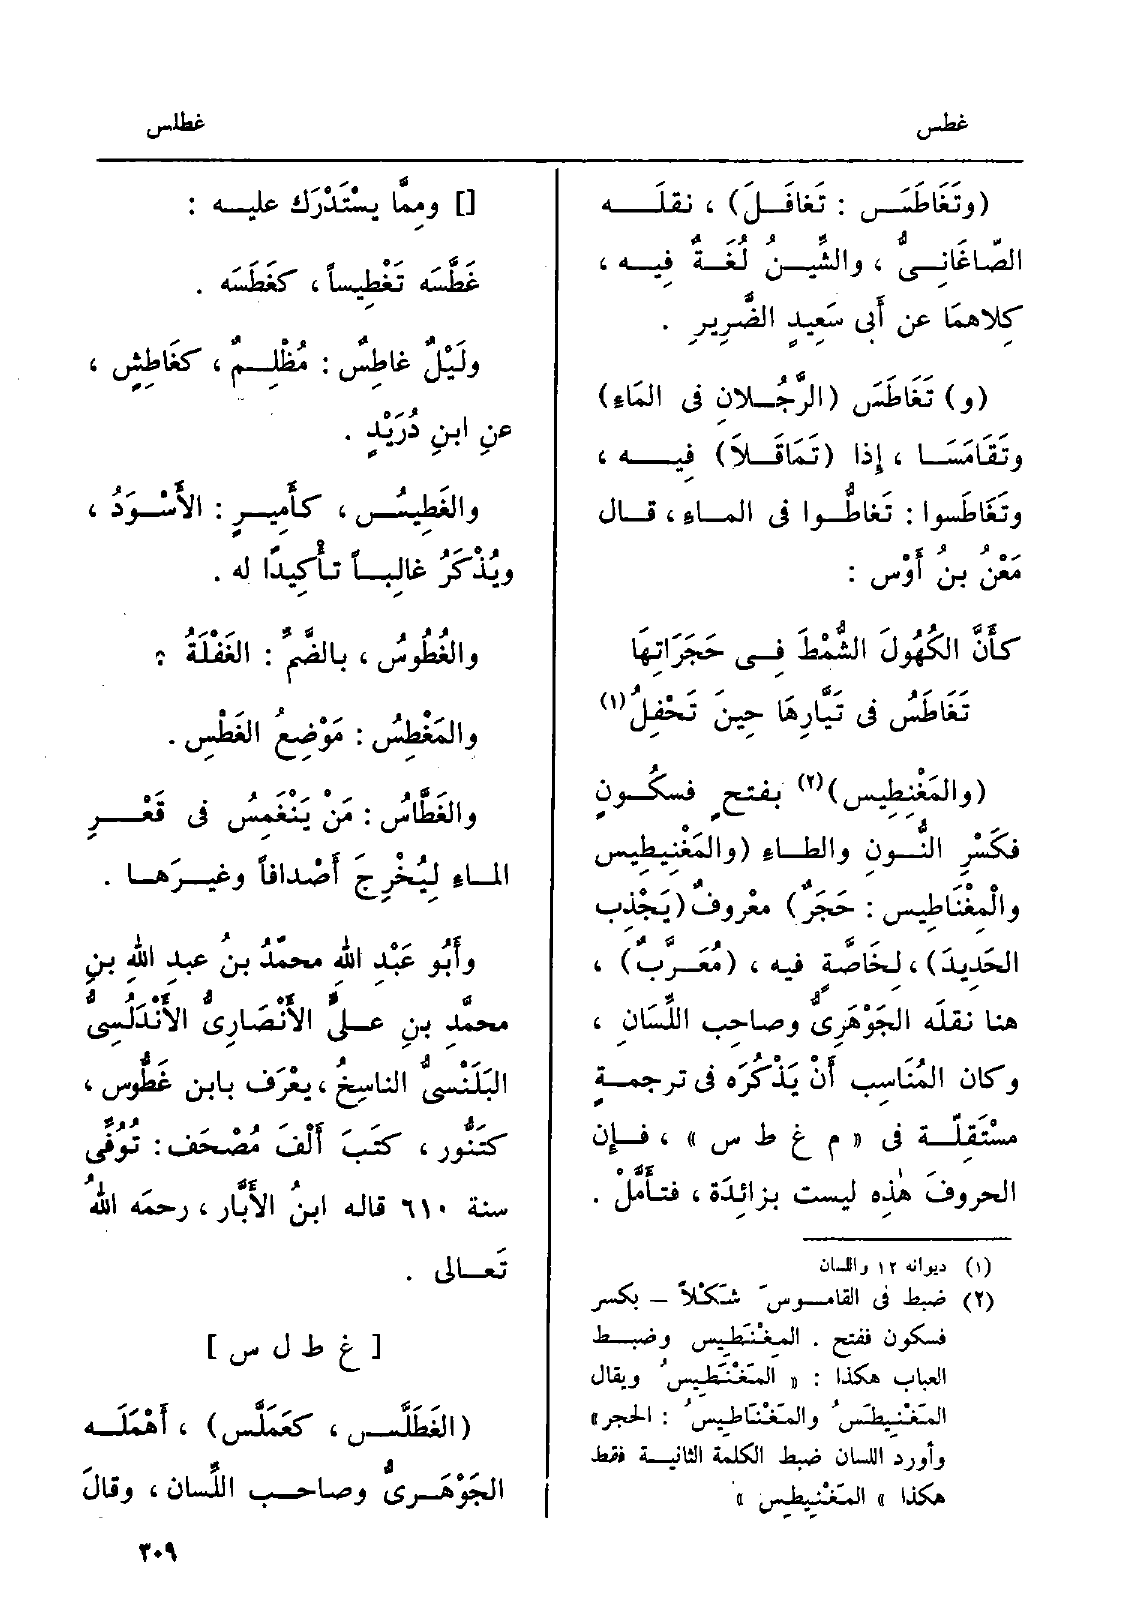 غطس
غطلس
(وتَغَاطَسَ : تَغافَلَ) ، نقلَه
الصّاغَانِىُّ ، والشِّينُ لُغَةٌ فِيه ،
كِلاهمَا عن أَبى سَعِيدٍ الضَّرِيرِ .
(و) تَغَاطَسَ (الرَّجُلانِ فى المَاءِ)
وتَقَامَسَا ، إِذا (تَمَاقَلاَ) فِيه ،
وتَغَاطَسوا : تَغاطُّوا فى الماءِ ، قال
مَعْنُ بنُ أَوْس :
كأَنَّ الكُهُولَ الشُّمْطَ فِى حَجَرَاتِهَا
تَغَاطَسُ فى تَيَّارِهَا حِينَ تَحْفِلُ (١)
(والمَغْنِطِيس) (٢) بفتحٍ فسكُونٍ
فكَسْرِ النُّونِ والطاءِ (والمَغْنِيطِيس
والْمِغْنَاطِيس : حَجَرٌ) معْروفٌ (يَجْذِب
الحَدِيدَ) ، لِخَاصَّةٍ فيه ، (مُعَرَّبٌ) ،
هنا نقلَه الجَوْهَرِىُّ وصاحِب اللِّسَانِ ،
وكان المُنَاسِب أَنْ يَذْكُرَه فى ترجمةٍ
مسْتَقِلَّة فى « م غ ط س » ، فإِن
الحروفَ هٰذِه ليست بزائدَة ، فتأَمَّلْ .
(١) ديوانه ١٢ واللسان
(٢) ضبط فى القاموس شَكْلاً – بكسر
فسكون ففتح . المِغْنَطِيس وضبط
العباب هكذا : « المَغْنَطِيسُ ويقال
المَغْنِيطِسُ والمَغْنَاطِيسُ : الحجر»
وأورد اللسان ضبط الكلمة الثانية فقط
هكذا « المَغْنِيطِس »
[] ومِمَّا يسْتَدْرَك عليه :
غَطَّسَه تَغْطِيساً ، كغَطَسَه .
ولَيْلٌ غاطِسٌ : مُظْلِمٌ ، كغَاطِشٍ ،
عنِ ابنِ دُرَيْدٍ .
والغَطِيسُ ، كأَمِيرٍ : الأَسْوَدُ ،
ويُذْكَرُ غالِباً تأْكِيدًا له .
والغُطُوسُ ، بالضَّمِّ : الغَفْلَةُ ؛
والمَغْطِسُ : مَوْضِعُ الغَطْسِ .
والغَطَّاسُ : مَنْ يَنْغَمِسُ فى قَعْرِ
الماءِ لِيُخْرِجَ أَصْدافاً وغيرَها .
وأَبُو عَبْدِ اللهِ محمّدُ بنُ عبدِ اللهِ بنِ
محمَّدِ بنِ علىٍّ الأَنْصَارِىُّ الأَنْدَلُسِىُّ
البَلَنْسىُّ الناسِخُ ، يعْرَف بابن غَطُّوس ،
كتَنُّور ، كتَبَ أَلْفَ مُصْحَف : تُوُفِّىَ
سنة ٦١٠ قاله ابنُ الأَبَّار ، رحمَه اللهُ
تَعالى .
[ غ ط ل س ]
(الغَطَلَّس ، كعَمَلَّس) ، أَهْمَلَه
الجَوْهَرِىُّ وصاحِب اللِّسان ، وقالَ
٣٠٩